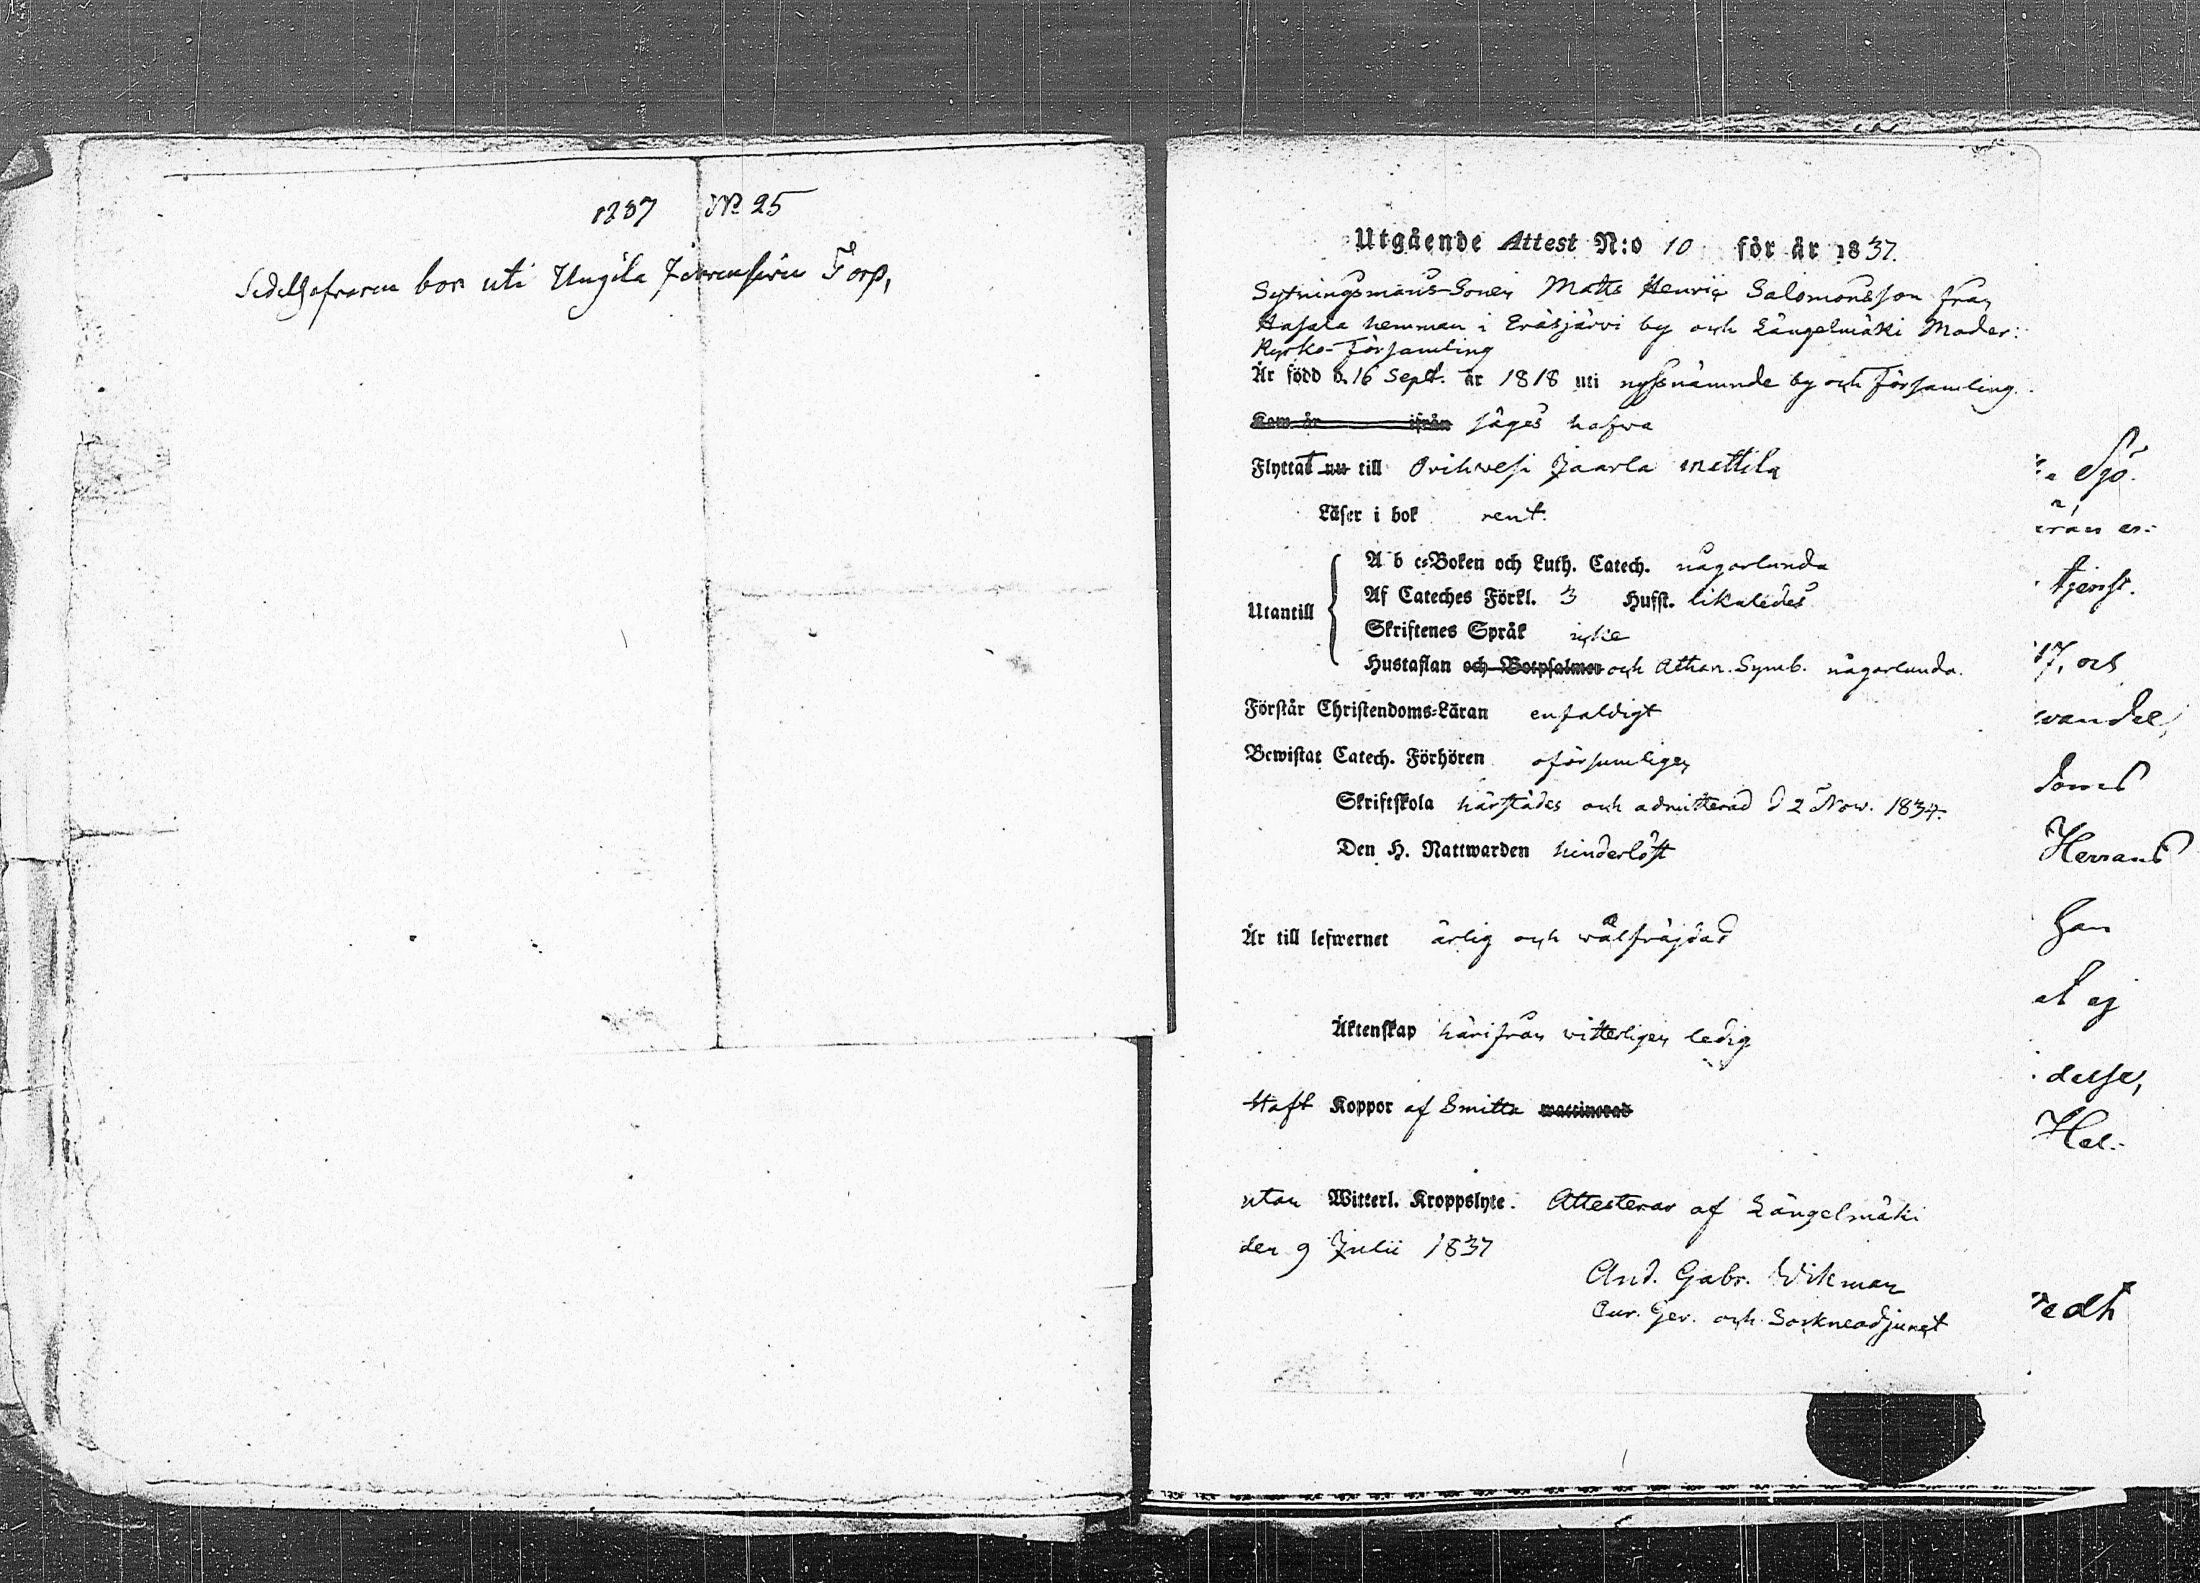 1837 No 25
Sedelhafvaren bor uti Ungila Torp,
Utgående Attest N:o 10 för år 1837.
Sytningsmans-Sonen Matts Henric Salomonsson från
Hasala hemman i Eräsjärvi by och Längelmäki Moder-
Kyrko-Församling
Är född d. 16 Sept. år 1818 uti nyssnämnde by och Församling.
Kom år ifrån säges hafva
Flyttat nu till Orihvesi Jaarla Mattila
Läser i bok rent.
Utantill
A b c-Boken och Luth. Catech. någorlunda
Af Cateches Förkl. 3 Hufst. likaledes
Skriftenes Språk icke
Hustaflan och Botpsalmer och Athan. Symb. någorlunda.
Förstår Christendoms-Läran enfaldigt
Bewistat Catech. Förhören oförsumligen
Skriftskola härstädes och admitterad d 2 Nov. 1834.
Den H. Nattwarden hinderlöst
Är till lefwernet ärlig och wälfräjdad
Äktenskap härifrån witterligen ledig
Haft Koppor af Smitta waccinerad
utan Witterl. Kroppslyte. Attesterar af Längelmäki
den 9 Julii 1837
And. Gabr. Wikman
Cur. Ger. och Sockneadjunct
Sjö-
från er-
tjenst.
17, och
wandel,
doms
Herrans
han
at ej
delse,
Hel-
edh